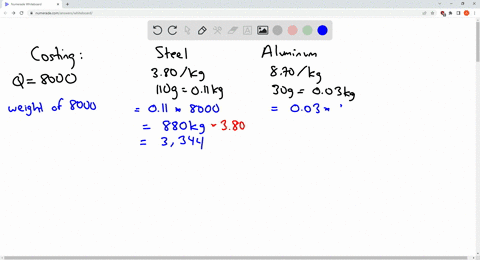 numerade.com/answers/whiteboard/
Costing:
Q = 8000
weight of 8000
Steel
3.80/kg
110g = 0.11kg
= 0.11 * 8000
= 880kg * 3.80
= 3,344
Aluminum
8.70/kg
30g = 0.03kg
= 0.03 *